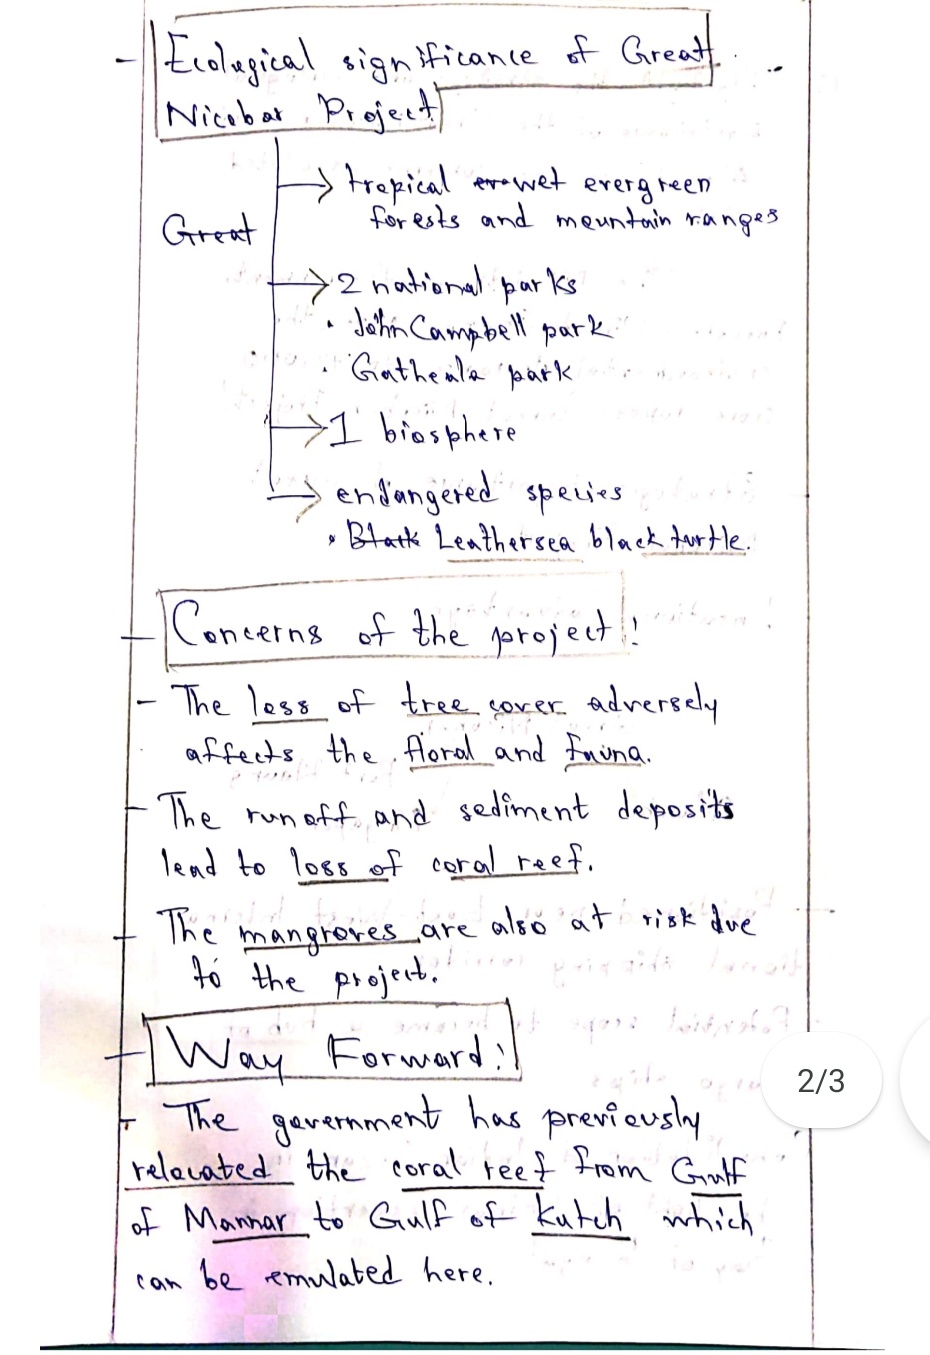 - Ecological significance of Great
Nicobar Project
→ tropical wet evergreen
forests and mountain ranges
Great
→ 2 national parks
• John Campbell park
• Gatheala park
→ 1 biosphere
→ endangered species
• Black Leathersea black turtle.
- Concerns of the project:
- The loss of tree cover adversely
affects the floral and Fauna.
- The runoff and sediment deposits
lead to loss of coral reef.
- The mangroves are also at risk due
to the project.
- Way Forward:
2/3
- The government has previously
relocated the coral reef from Gulf
of Mannar to Gulf of Kutch which
can be emulated here.